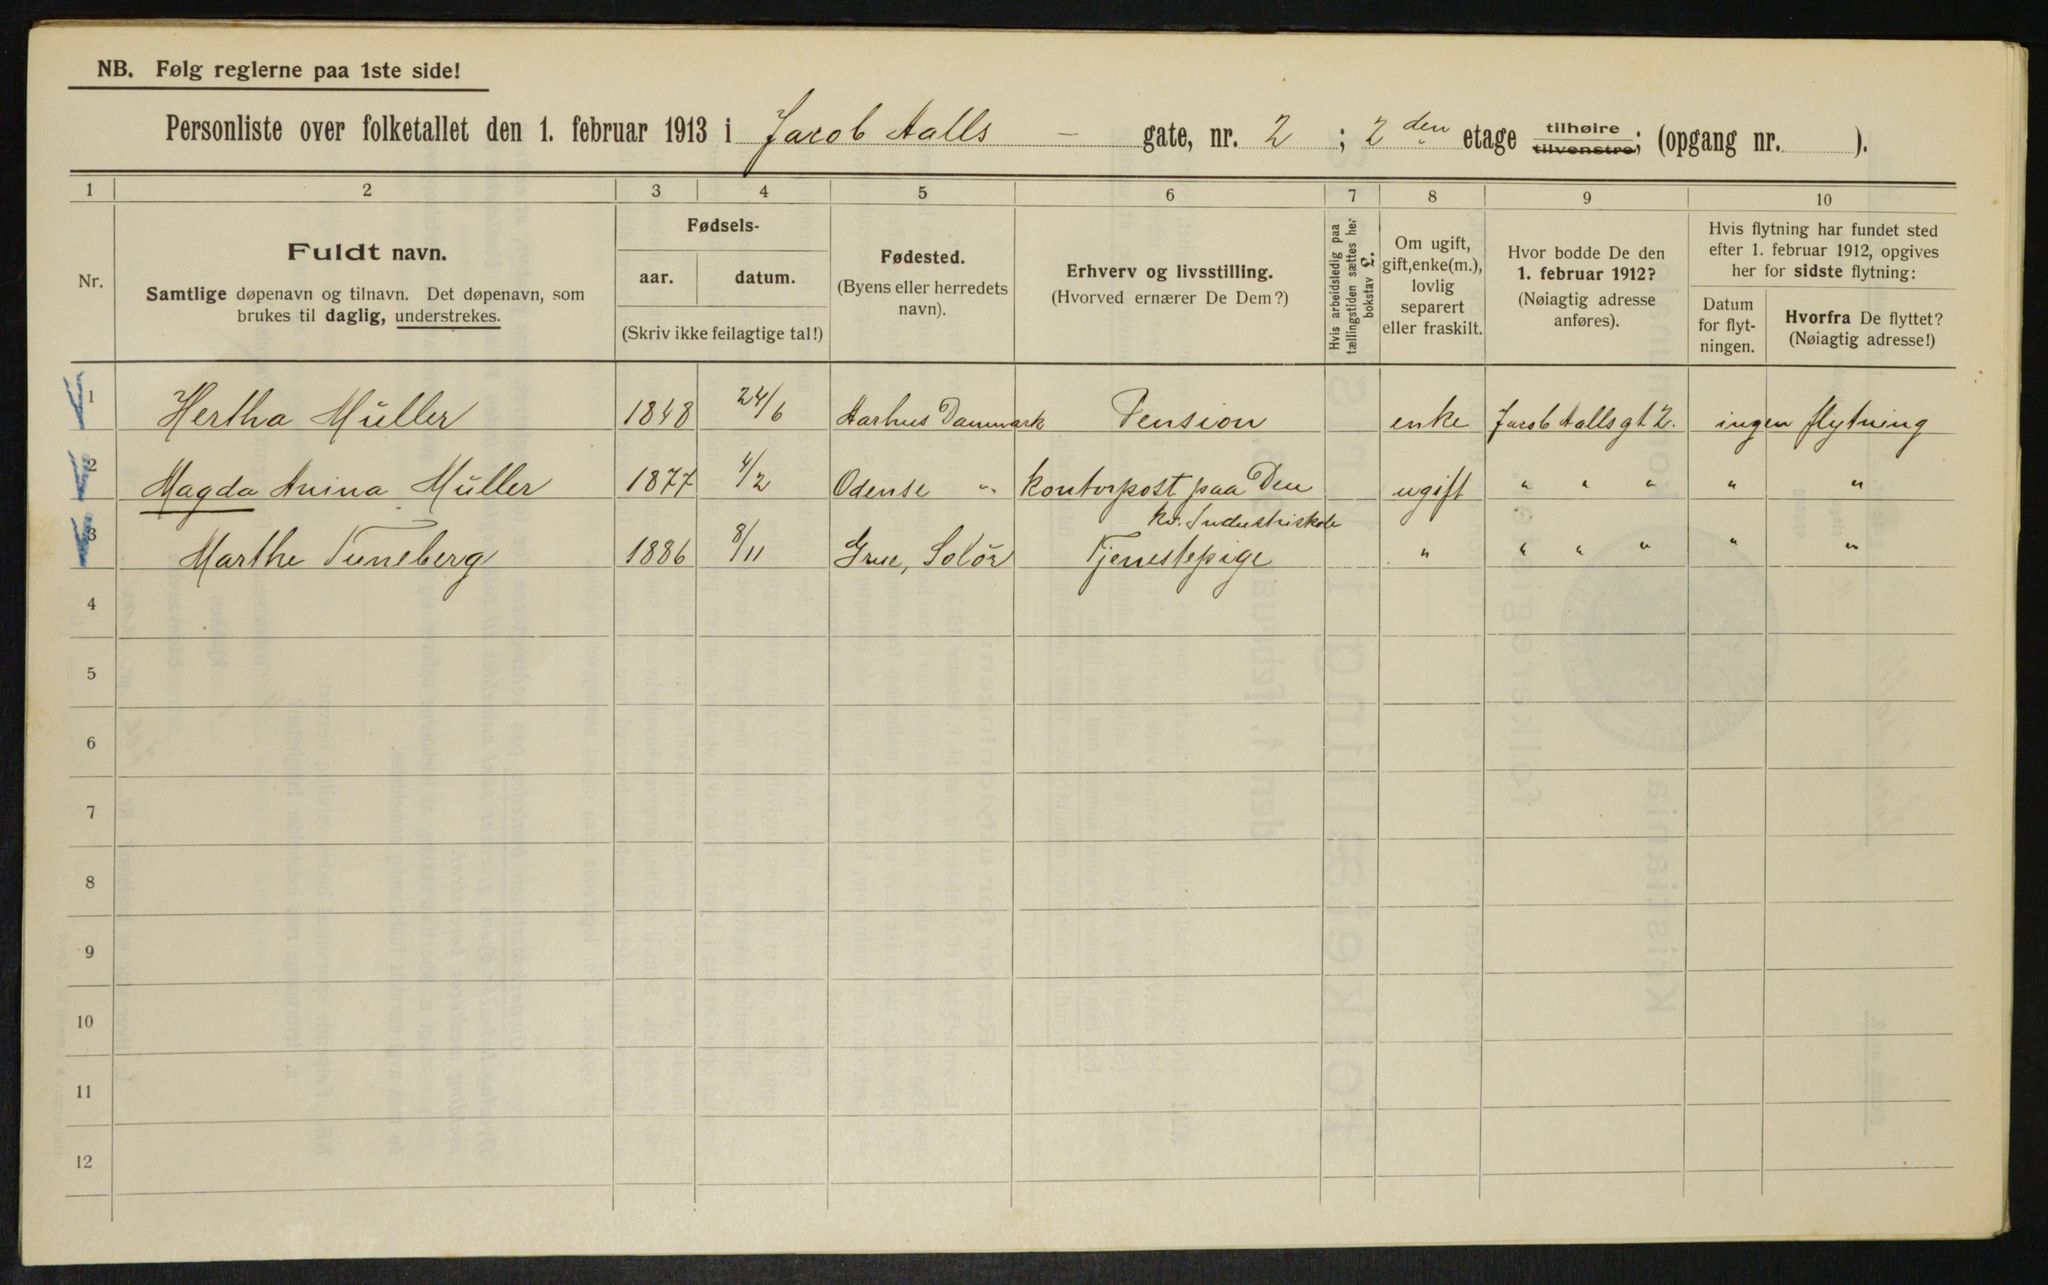 NB. Følg reglerne paa 1ste side!
Personliste over folketallet den 1. februar 1913 i Jacob Aalls – gate, nr. 2 ; 2 den etage tilhøire tilvenstre; (opgang nr. ).
1 2 3 4 5 6 7 8 9 10
Nr.
Fuldt navn.
Samtlige døpenavn og tilnavn. Det døpenavn, som
brukes til daglig, understrekes.
Fødsels-
aar. datum.
(Skriv ikke feilagtige tal!)
Fødested.
(Byens eller herredets
navn).
Erhverv og livsstilling.
(Hvorved ernærer De Dem?)
Hvis arbeidsledig paa
tællingstiden sættes her
bokstav L.
Om ugift,
gift, enke(m.),
lovlig
separert
eller fraskilt.
Hvor bodde De den
1. februar 1912?
(Nøiagtig adresse
anføres).
Hvis flytning har fundet sted
efter 1. februar 1912, opgives
her for sidste flytning:
Datum
for flyt-
ningen.
Hvorfra De flyttet?
(Nøiagtig adresse!)
1 Hertha Müller 1848 24/6 Aarhus Danmark Pension enke Jacob Aallsgt 2. ingen flytning
2 Magda Anina Müller 1877 4/2 Odense " kontorpost paa Den kv. Industriskole ugift " " " " "
3 Marthe Tuneberg 1886 8/11 Grue, Solör Tjenestepige " " " " " "
4
5
6
7
8
9
10
11
12